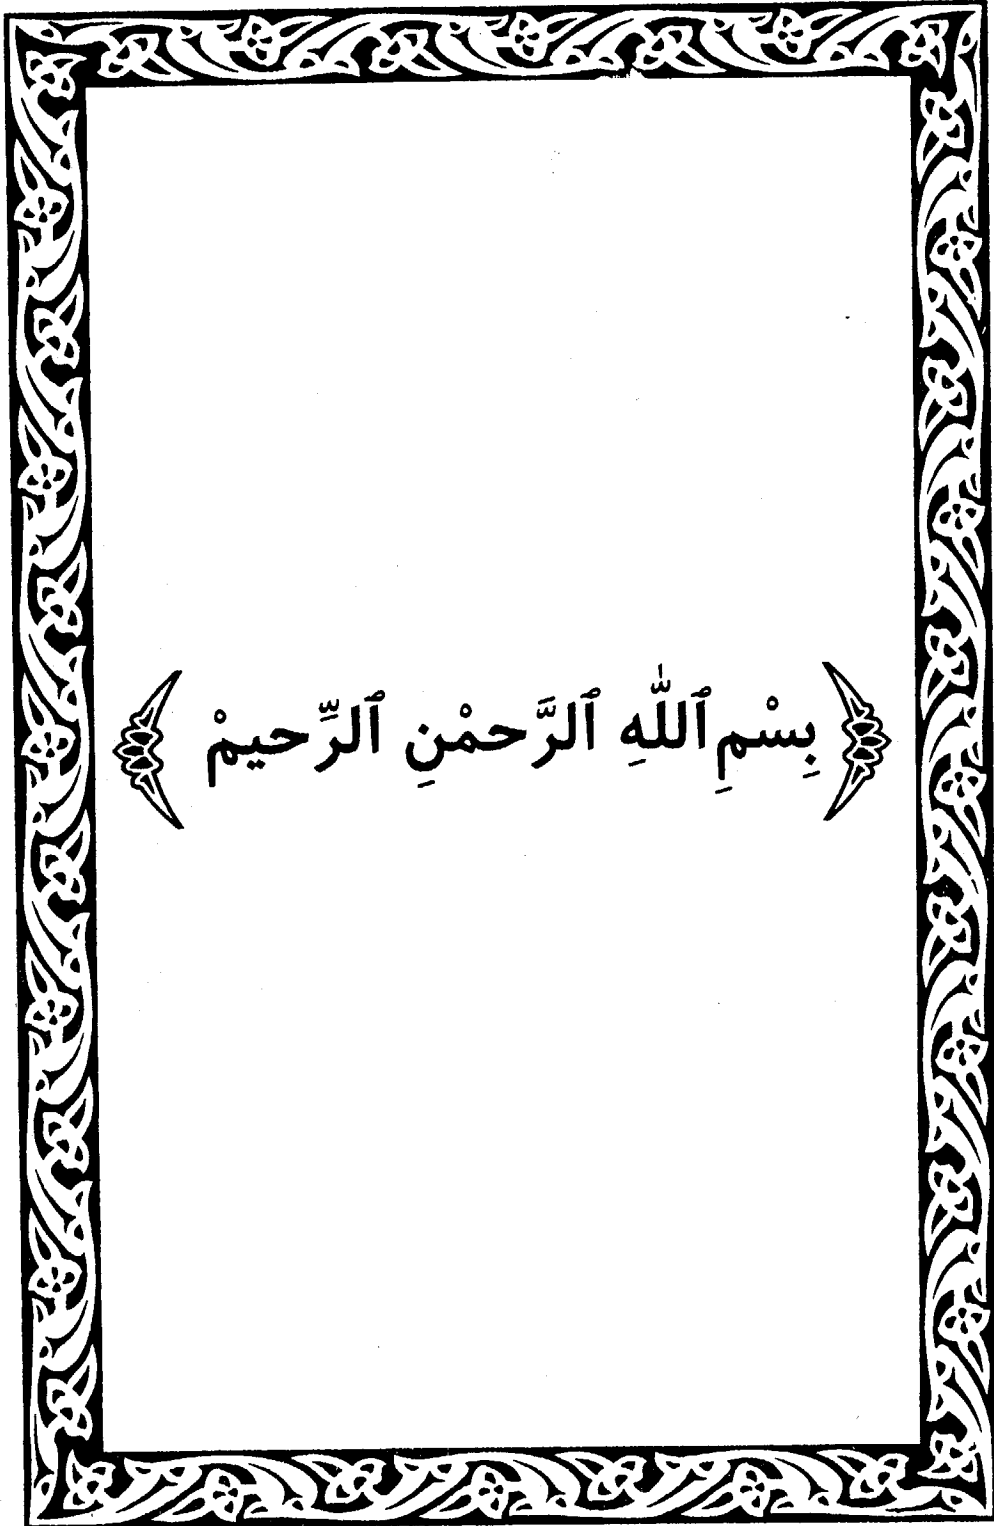 ﴿بِسْمِ ٱللّٰهِ ٱلرَّحمْنِ ٱلرِّحيمْ﴾